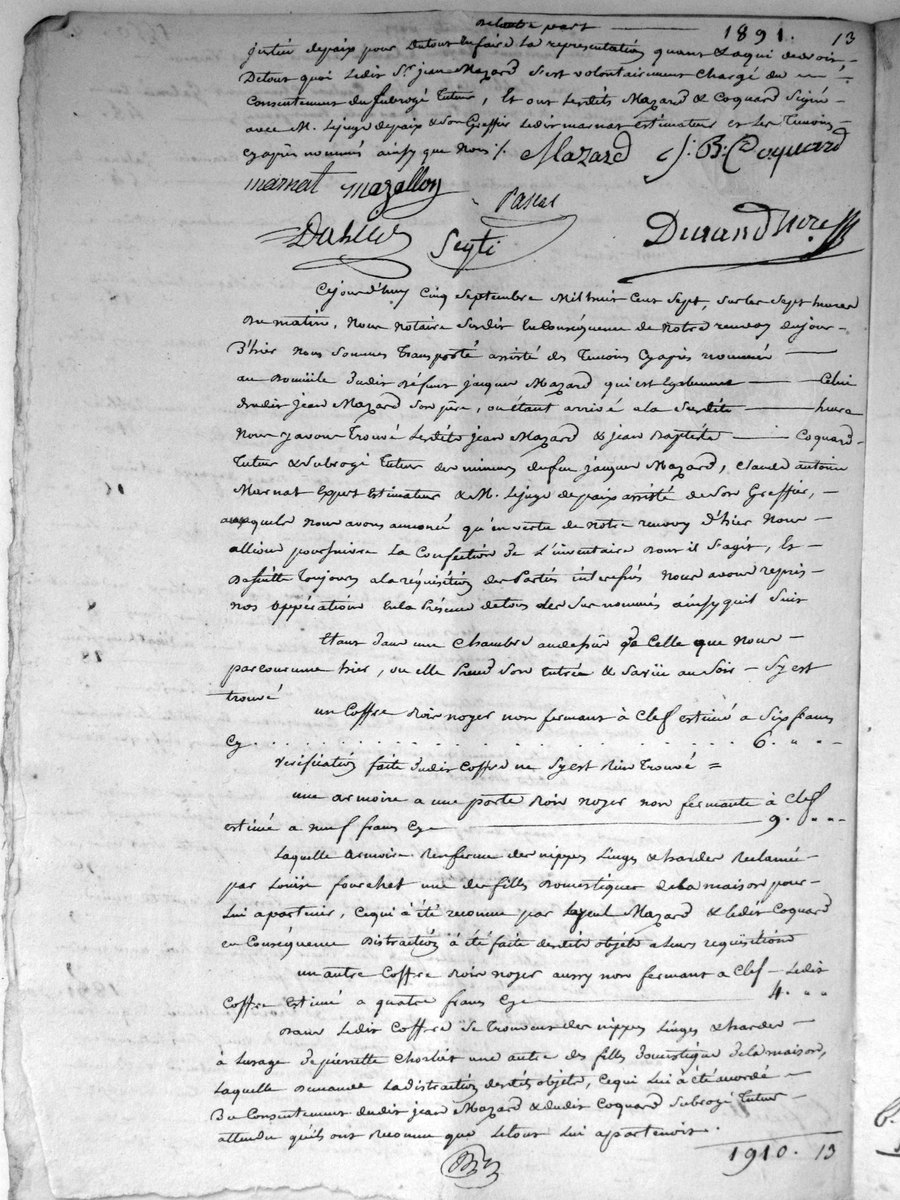 De l'autre part 1891. 13
justice depaix pour Dutout En faire la representation quant & aqui de droit
Detout quoi Ledit Sr. jean Mazard s'est volontairement chargé du
Consentement du Subrogé tutur, Et ont Lesdits Mazard & Coquard Signé
avec M. Lejuge depaix & son Greffier Ledit marnat Estimateur et Les temoins
cyaprès nommés ainsy que Nous /. Mazard J. B. Coquard
marnat mazallon
Pascal
Seyti Durand Nore
Cejourd'huy Cinq Septembre Mil huit Cent Sept, sur les Sept heures
Du matin, Nous Notaire Susdit En Conséquence de Notre renvoy dujour
D'hier Nous Sommes Transporté assisté des Temoins Cyaprès nommés
au Domicile dudit défunt jacques Mazard qui est Celui
dudit jean Mazard Son père, ou étant arrivé a la Susdite heure
Nous y avons Trouvé Lesdits jean Mazard & jean Baptiste Coquard
Tutur & Subrogé Tutur des mineurs defeu jacques Mazard, Claude antoine
Marnat Expert Estimateur & M. Lejuge depaix assisté de Son Greffier,
auxquels nous avons annoncé qu'en vertu de Notre renvoy d'hier Nous
allions poursuivre La Confection de L'inventaire Dont il S'agit, Et
Desuitte Toujours a la réquisition des Parties interessés Nous avons repris
nos oppérations En la Présence detous les Sus nommés ainsy quil Suit
Etans dans une Chambre audessus de Celle que Nous
parcourumes hier, ou elle Prend Son Entrée & Sortie au Soir Sy est
trouvé
un Coffre bois noyer non fermant à Clef estimé a Six francs
Cy . . . . . . 6. " "
Vérification faite dudit Coffre ne Sy est Rien Trouvé =
une armoire a une porte bois noyer non fermante à Clef
estimée a neuf francs Cy 9. " "
Laquelle armoire Renferme des nippes Linges & hardes Reclamés
par Louise fourchet une des filles Domestiques dela maison pour
Lui apartenir, Cequi à été reconnu par Layeul Mazard & ledit Coquard
en Conséquence Distraction à été faite desdits objets a leurs requisitions
un autre Coffre bois noyer aussy non fermant a Clef Ledit
Coffre Estimé a quatre francs Cy 4. " "
Dans Ledit Coffre Se trouvent des nippes Linges & hardes
à Lusage de pierrette Chorliet une autre des filles domestique dela maison,
Laquelle demande La distraction desdits objets, Cequi Lui à été accordé
Du Consentement dudit jean Mazard & dudit Coquard Subrogé Tutur
attendu quils ont Reconnu que Letout Lui apartenoit.
1910. 13